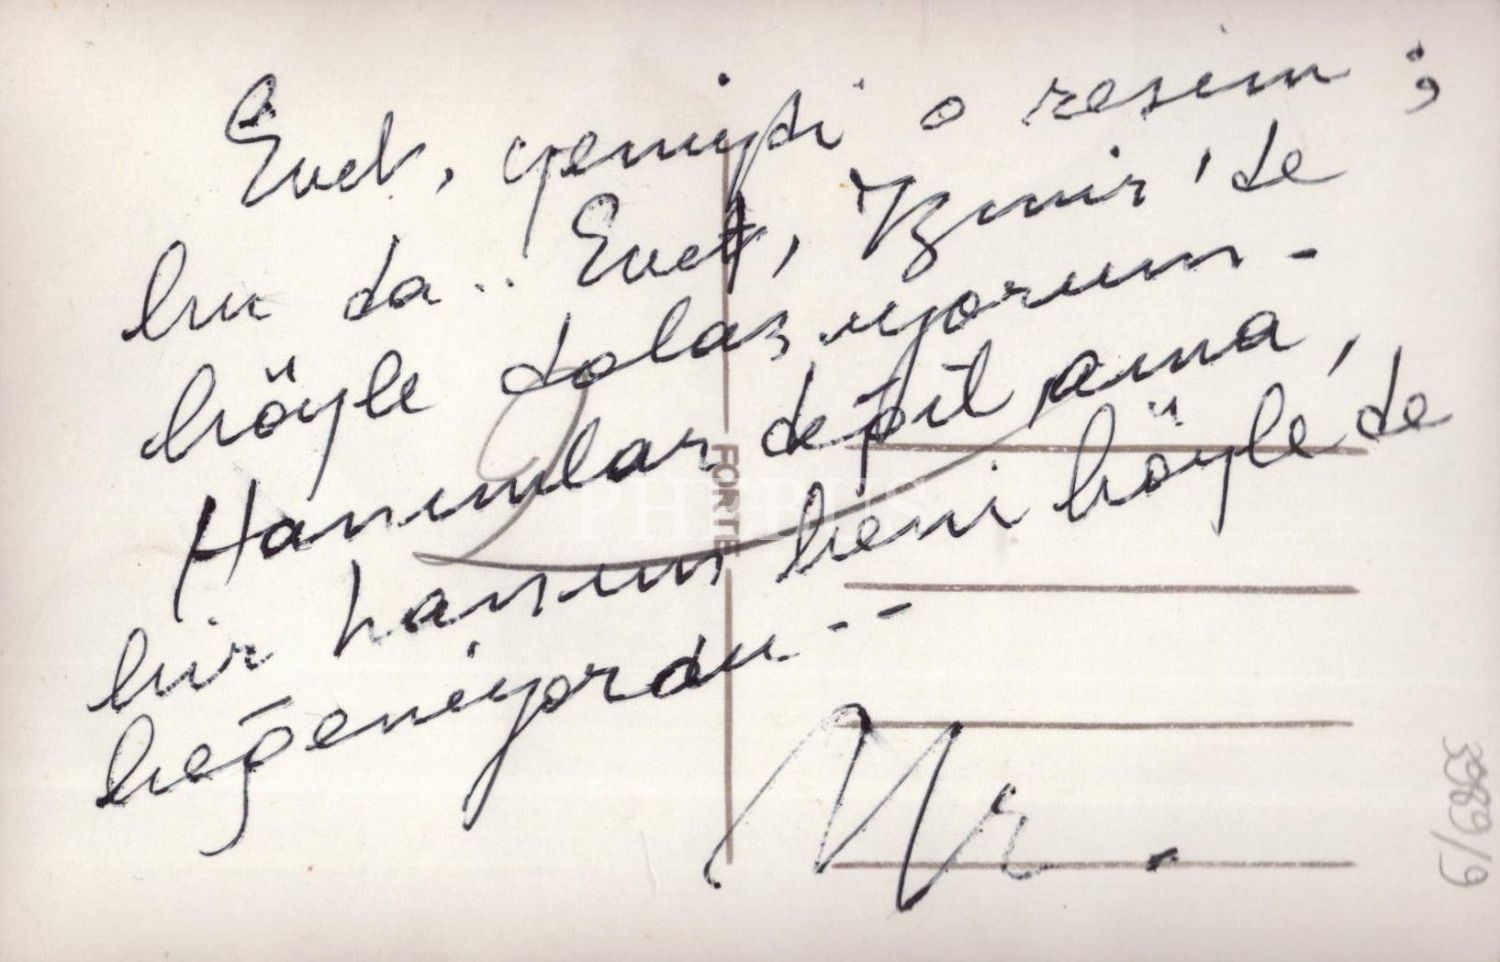 Evet, yenüşti o resim ;
bu da.. Evet, İzmir'de
böyle dolaşıyorum -
Hanımlar değil ama,
bir hanım beni böyle de
beğeniyordu - -
Nr.
FORTE
PHEBUS
3989/9